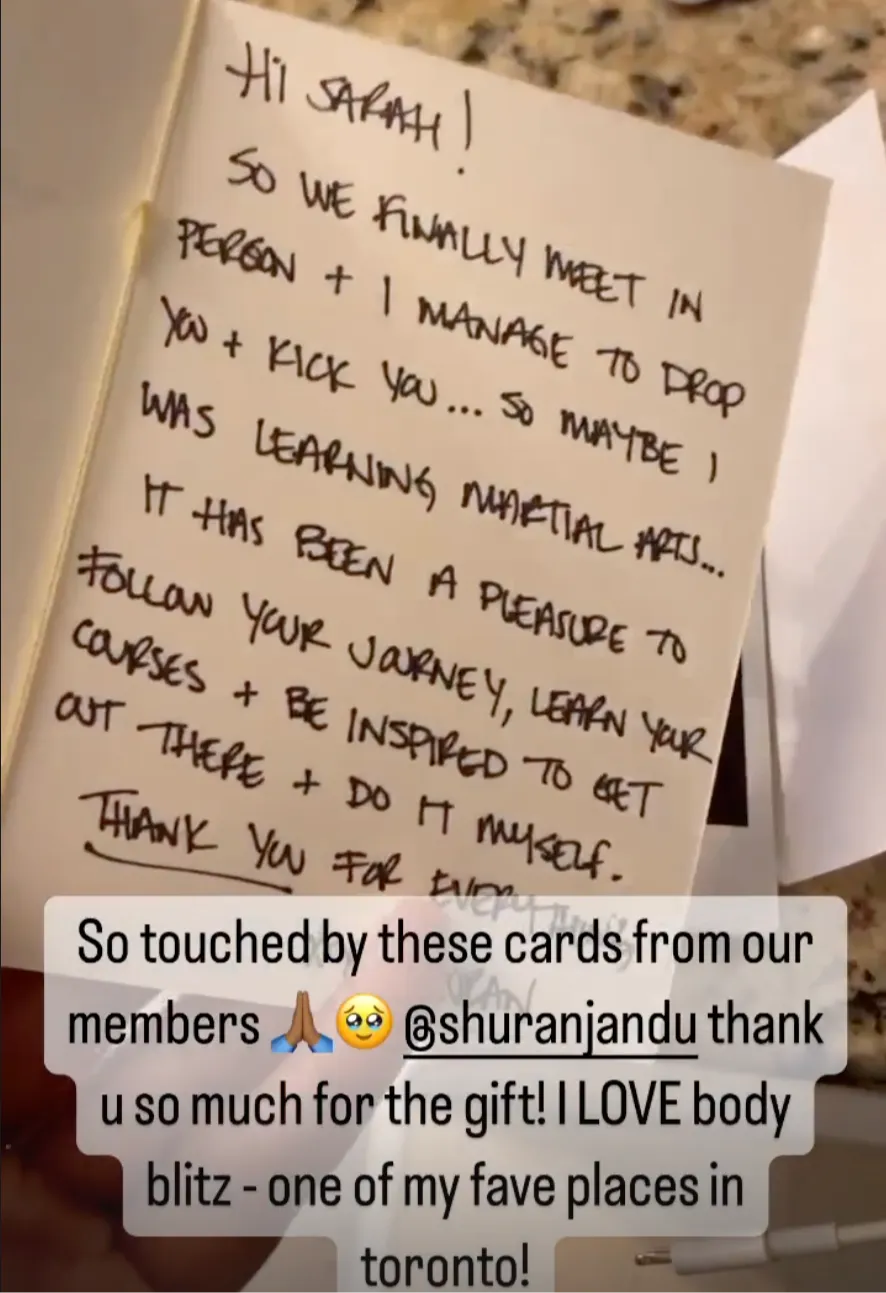 Hi SARAH!
SO WE FINALLY MEET IN
PERSON + I MANAGE TO DROP
YOU + KICK YOU... SO MAYBE I
WAS LEARNING MARTIAL ARTS...
IT HAS BEEN A PLEASURE TO
FOLLOW YOUR JOURNEY, LEARN YOUR
COURSES + BE INSPIRED TO GET
OUT THERE + DO IT MYSELF.
THANK YOU FOR EVERYTHING,
So touched by these cards from our
members 🙏🏾🥹 @shuranjandu thank
u so much for the gift! I LOVE body
blitz - one of my fave places in
toronto!